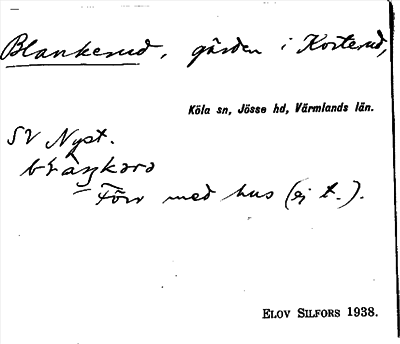 Blankerud, gården i Korterud,
Köla sn, Jösse hd, Värmlands län.
SV Nyst.
Förr med hus (ej t.).
ELOV SILFORS 1938.